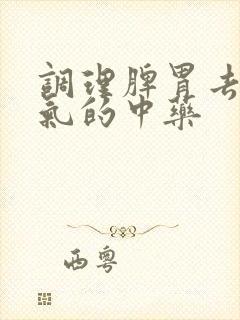 調理脾胃去
氣的中藥
西粵